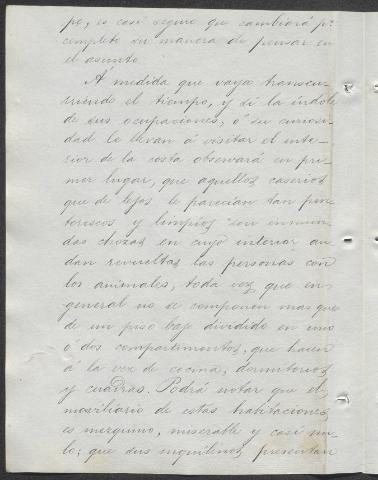 po, es casi seguro que cambiará pr
completo su manera de pensar en
el asunto.
Á medida que vaya transcu-
rriendo el tiempo, y si la índole
de sus ocupaciones, ó su curiosi-
dad lo llevan á visitar el inte-
rior de la costa observará en pri-
mer lugar, que aquellos caserios
que de lejos le parecían tan pin-
torescos y limpios son inmun-
das chozas en cuyo interior an-
dan revueltas las personas con
los animales, toda vez que en
general no se componen mas que
de un piso bajo dividido en uno
ó dos compartimentos, que hacen
á la vez de cocina, dormitorios
y cuadras. Podrá notar que el
moviliario de estas habitaciones
es mezquino, miserable y casi nu-
lo; que sus inquilinos presentan